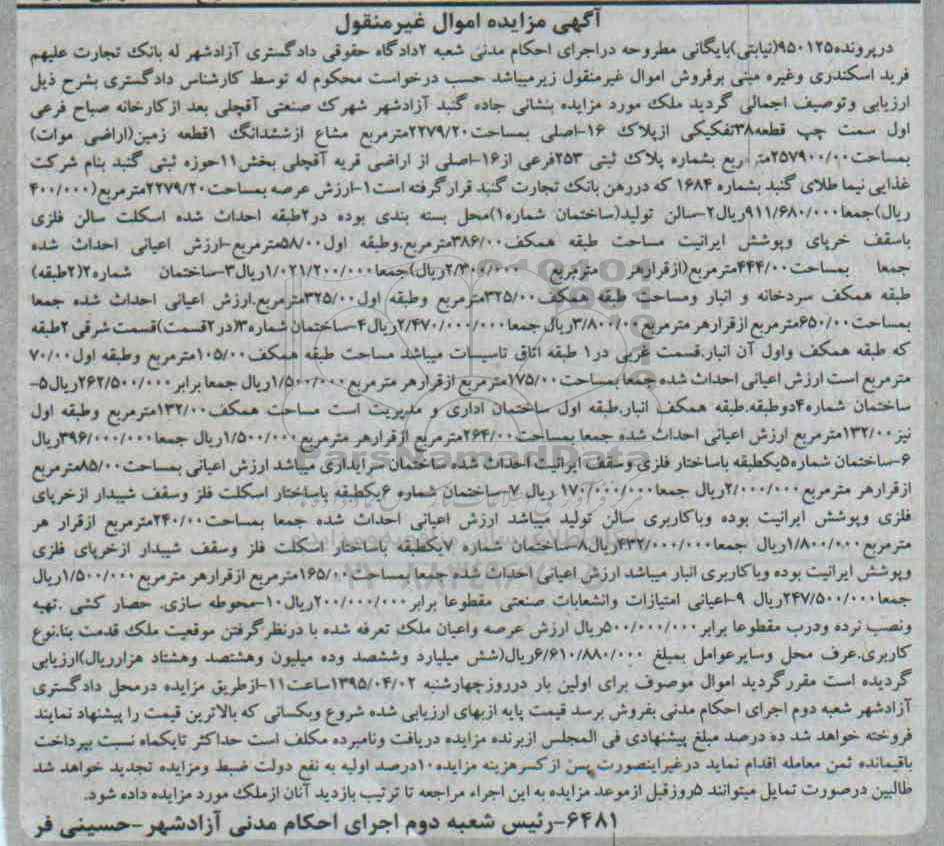 آگهی مزایده اموال غیرمنقول
درپرونده۹۵۰۱۲۵(نیابتی)بایگانی مطروحه دراجرای احکام مدنی شعبه ۲دادگاه حقوقی دادگستری آزادشهر له بانک تجارت علیهم
فرید اسکندری وغیره مبنی برفروش اموال غیرمنقول زیرمیباشد حسب درخواست محکوم له توسط کارشناس دادگستری بشرح ذیل
ارزیابی وتوصیف اجمالی گردید ملک مورد مزایده بنشانی جاده گنبد آزادشهر شهرک صنعتی آقچلی بعد ازکارخانه صباح فرعی
اول سمت چپ قطعه۳۸تفکیکی ازپلاک ۱۶-اصلی بمساحت۲۲۷۹/۲۰مترمربع مشاع ازششدانگ ۱قطعه زمین(اراضی موات)
بمساحت۲۵۷۹۰۰/۰۰متر ربع بشماره پلاک ثبتی ۲۵۳فرعی از۱۶-اصلی از اراضی قریه آقچلی بخش۱۱حوزه ثبتی گنبد بنام شرکت
غذایی نیما طلای گنبد بشماره ۱۶۸۴ که دررهن بانک تجارت گنبد قرارگرفته است۱-ارزش عرصه بمساحت۲۲۷۹/۲۰مترمربع(۴۰۰/۰۰۰
ریال)جمعا۹۱۱/۶۸۰/۰۰۰ریال۲-سالن تولید(ساختمان شماره۱)محل بسته بندی بوده در۲طبقه احداث شده اسکلت سالن فلزی
باسقف خرپای وپوشش ایرانیت مساحت طبقه همکف۳۸۶/۰۰مترمربع.وطبقه اول۵۸/۰۰مترمربع-ارزش اعیانی احداث شده
جمعا بمساحت۴۴۴/۰۰مترمربع(ازقرارهر مترمربع ۲/۳۰۰/۰۰۰ریال)جمعا۱/۰۲۱/۲۰۰/۰۰۰ریال۳-ساختمان شماره۲(۲طبقه)
طبقه همکف سردخانه و انبار ومساحت طبقه همکف۳۲۵/۰۰مترمربع وطبقه اول۳۲۵/۰۰مترمربع.ارزش اعیانی احداث شده جمعا
بمساحت۶۵۰/۰۰مترمربع ازقرارهر مترمربع۳/۸۰۰/۰۰۰ریال جمعا۲/۴۷۰/۰۰۰/۰۰۰ریال۴-ساختمان شماره۳(در۲قسمت)قسمت شرقی ۲طبقه
که طبقه همکف واول آن انبار.قسمت غربی در۱ طبقه اتاق تاسیسات میباشد مساحت طبقه همکف۱۰۵/۰۰مترمربع وطبقه اول۷۰/۰۰
مترمربع است ارزش اعیانی احداث شده جمعا بمساحت۱۷۵/۰۰مترمربع ازقرارهر مترمربع۱/۵۰۰/۰۰۰ریال جمعا برابر۲۶۲/۵۰۰/۰۰۰ریال۵-
ساختمان شماره۴دوطبقه.طبقه همکف انبار.طبقه اول ساختمان اداری و مدیریت است مساحت همکف۱۳۲/۰۰مترمربع وطبقه اول
نیز۱۳۲/۰۰مترمربع ارزش اعیانی احداث شده جمعا بمساحت۲۶۴/۰۰مترمربع ازقرارهر مترمربع۱/۵۰۰/۰۰۰ریال جمعا۳۹۶/۰۰۰/۰۰۰ریال
۶-ساختمان شماره۵یکطبقه باساختار فلزی وسقف ایرانیت احداث شده ساختمان سرایداری میباشد ارزش اعیانی بمساحت۸۵/۰۰مترمربع
ازقرارهر مترمربع۲/۰۰۰/۰۰۰ریال جمعا۱۷۰/۰۰۰/۰۰۰ ریال ۷-ساختمان شماره ۶یکطبقه باساختار اسکلت فلز وسقف شیبدار ازخرپای
فلزی وپوشش ایرانیت بوده وباکاربری سالن تولید میباشد ارزش اعیانی احداث شده جمعا بمساحت۲۴۰/۰۰مترمربع ازقرار هر
مترمربع۱/۸۰۰/۰۰۰ریال جمعا۴۳۲/۰۰۰/۰۰۰ریال۸-ساختمان شماره ۷یکطبقه باساختار اسکلت فلز وسقف شیبدار ازخرپای فلزی
وپوشش ایرانیت بوده وباکاربری انبار میباشد ارزش اعیانی احداث شده جمعا بمساحت۱۶۵/۰۰مترمربع ازقرارهر مترمربع۱/۵۰۰/۰۰۰ریال
جمعا۲۴۷/۵۰۰/۰۰۰ریال ۹-اعیانی امتیازات وانشعابات صنعتی مقطوعا برابر۲۰۰/۰۰۰/۰۰۰ریال۱۰-محوطه سازی. حصار کشی .تهیه
ونصب نرده ودرب مقطوعا برابر۵۰۰/۰۰۰/۰۰۰ریال ارزش عرصه واعیان ملک تعرفه شده با درنظرگرفتن موقعیت ملک قدمت بنا.نوع
کاربری.عرف محل وسایرعوامل بمبلغ ۶/۶۱۰/۸۸۰/۰۰۰ریال(شش میلیارد وششصد وده میلیون وهشتصد وهشتاد هزارریال)ارزیابی
گردیده است مقررگردید اموال موصوف برای اولین بار درروزچهارشنبه ۱۳۹۵/۰۴/۰۲ساعت۱۱-ازطریق مزایده درمحل دادگستری
آزادشهر شعبه دوم اجرای احکام مدنی بفروش برسد قیمت پایه ازبهای ارزیابی شده شروع وبکسانی که بالاترین قیمت را پیشنهاد نمایند
فروخته خواهد شد ده درصد مبلغ پیشنهادی فی المجلس ازبرنده مزایده دریافت ونامبرده مکلف است حداکثر تایکماه نسبت بپرداخت
باقیمانده ثمن معامله اقدام نماید درغیراینصورت پس ازکسرهزینه مزایده۱۰درصد اولیه به نفع دولت ضبط ومزایده تجدید خواهد شد
طالبین درصورت تمایل میتوانند ۵روزقبل ازموعد مزایده به این اجراء مراجعه تا ترتیب بازدید آنان ازملک مورد مزایده داده شود.
۶۴۸۱-رئیس شعبه دوم اجرای احکام مدنی آزادشهر-حسینی فر
ParsNamadData